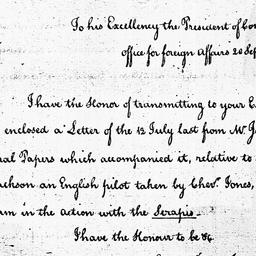 To his Excellency the President of Con
office for foreign Affairs 20 Sep
I have the Honor of transmitting to your E
enclosed a Letter of the 12 July last from Mr. J
al Papers which accompanied it, relative to
ackson an English pilot taken by Chevr. Jones,
in the Action with the Serapis_
I have the Honour to be &c